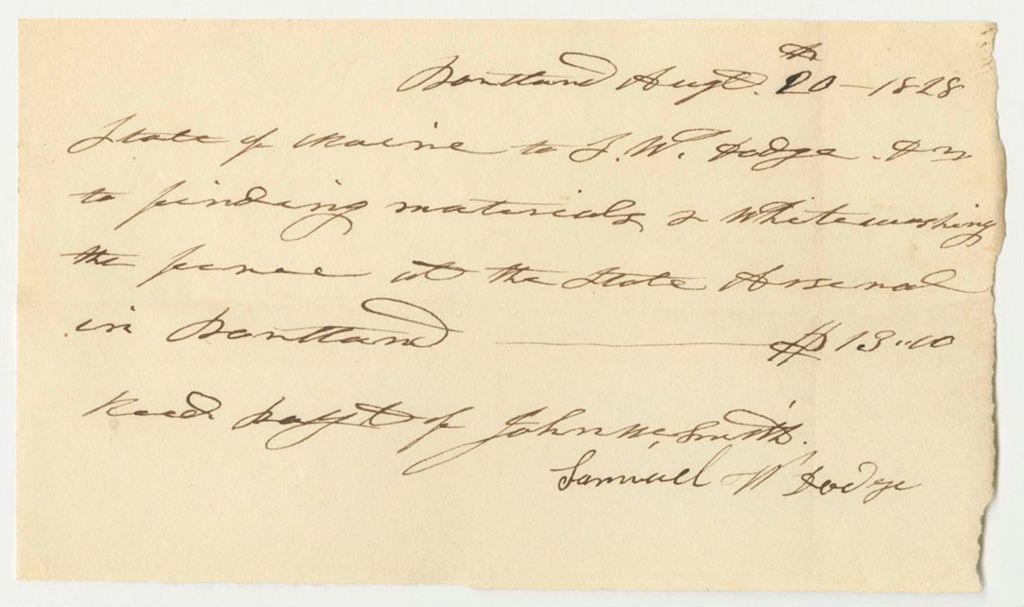 Portland Augt. 20th - 1828
State of Maine to S. W. Dodge Dr
to finding materials & Whitewashing
the fence at the State Arsenal
in Portland $13.10
Recd payt of John W. Smith.
Samuel W Dodge